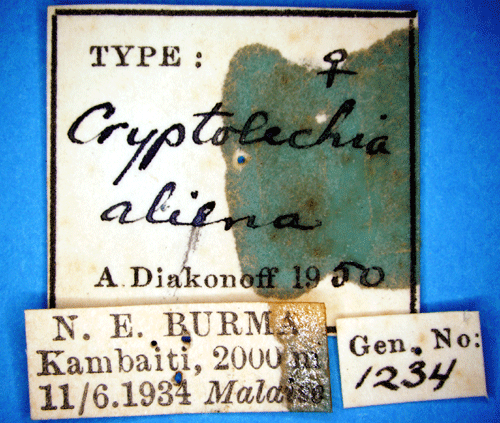 TYPE : ♀
Cryptolechia
aliena
A. Diakonoff 1950
N. E. BURMA
Kambaiti, 2000 m
11/6.1934 Malaise
Gen. No:
1234